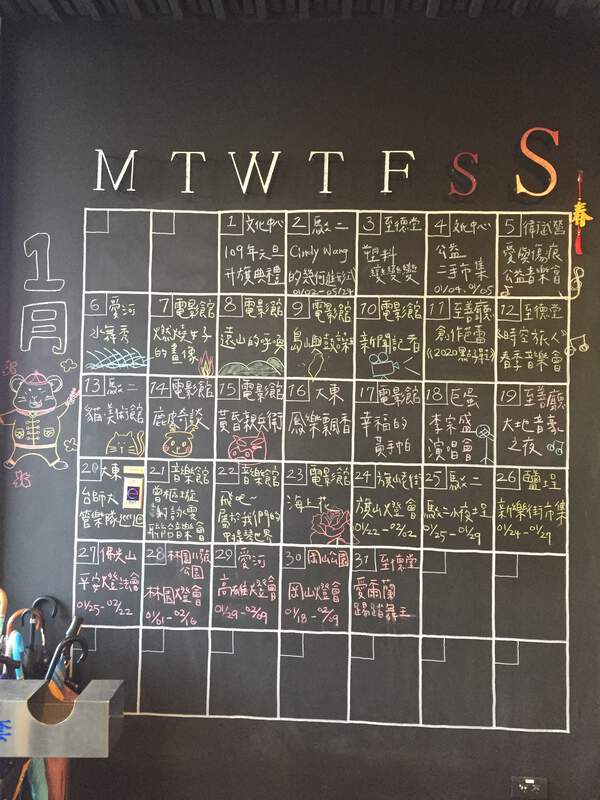 M T W T F S S
春
1月
1 文化中心
109年元旦
升旗典禮
2 駁二
Cindy Wang
的幾何進形式
01/02-05/24
3 至德堂
塑料
變變變
4 文化中心
公益
二手市集
01/04.01/05
5 衛武營
愛與傷痕
公益音樂會
6 愛河
水舞秀
7 電影館
燃燒女子
的畫像
8 電影館
遠山的呼喚
9 電影館
10 電影館
新聞記者
11 至善廳
創作芭蕾
12 至德堂
《時空旅人》
春季音樂會
13 駁二
貓美術館
14 電影館
15 電影館
黃昏親衛術
16 大東
鳳樂飄香
17 電影館
幸福的
黃手帕
18 巨蛋
李宗盛
演唱會
19 至善廳
大地音素
之夜
20 大東
台師大
管樂隊
21 音樂館
曾板璇
謝詠雯
聯合音樂會
22 音樂館
飛吧~
屬於我們的
世界
23 電影館
海上花
24 旗山老街
旗山燈會
01/22-02/02
25 駁二
駁二水夜埕
01/25-01/29
26 鹽埕
新樂街市集
01/24-01/27
27 佛光山
平安燈法會
01/25-02/22
28 林園11號
公園
林園燈會
01/01-02/16
29 愛河
高雄燈會
01/29-02/09
30 岡山公園
岡山燈會
01/18-02/09
31 至德堂
愛爾蘭
踢踏舞王